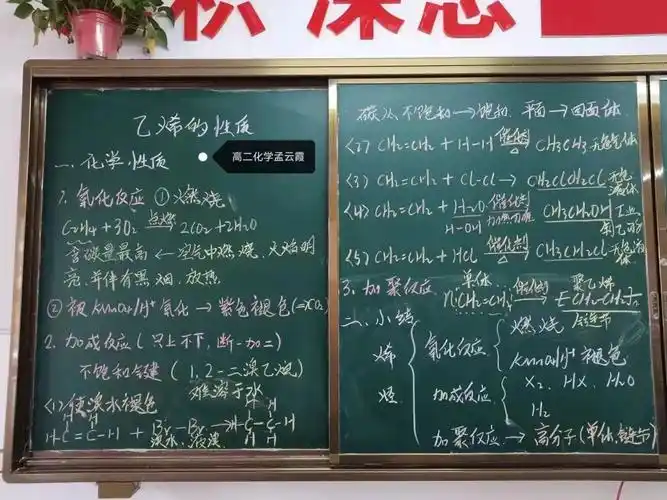 积 深思
乙烯的性质
高二化学孟云霞
一、化学性质
1. 氧化反应 ① 燃烧
C₂H₄ + 3O₂ 点燃→ 2CO₂ + 2H₂O
含碳量最高 ← 空气中燃烧，火焰明
亮，并伴有黑烟，放热
② 被 KMnO₄/H⁺ 氧化 → 紫色褪色 (→CO₂)
2. 加成反应 (只上不下，断一加二)
不饱和键 (1,2-二溴乙烷)
难溶于水
<1> 使溴水褪色
H H H H
H-C=C-H + Br-Br → H-C-C-H
溴水、液溴
碳从不饱和 → 饱和 平面 → 四面体
<2> CH₂=CH₂ + H-H 催化剂△→ CH₃CH₃ 无色气体
<3> CH₂=CH₂ + Cl-Cl → CH₂ClCH₂Cl 无色液体
<4> CH₂=CH₂ + H₂O 催化剂→ CH₃CH₂OH 工业
H-OH 加热加压 制乙醇
<5> CH₂=CH₂ + HCl 催化剂△→ CH₃CH₂Cl
3. 加聚反应 单体 聚乙烯
nCH₂=CH₂ 催化剂→ [CH₂-CH₂]n
链节
二、小结
烯烃
氧化反应 燃烧
KMnO₄/H⁺ 褪色
加成反应 X₂、HX、H₂O
H₂
加聚反应 → 高分子 (单体,链节)